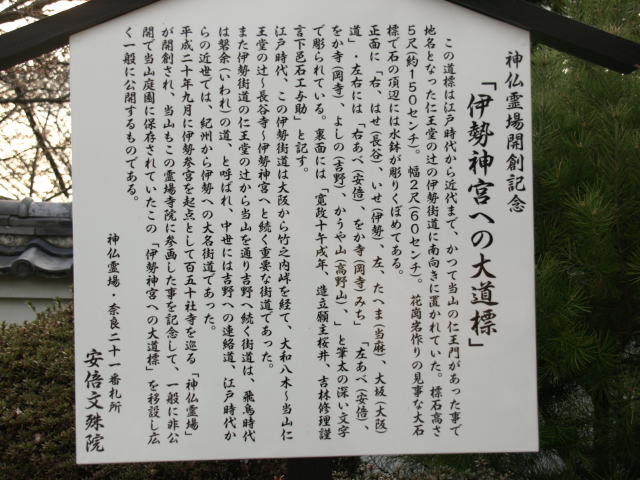 神仏霊場開創記念
「伊勢神宮への大道標」
この道標は江戸時代から近代まで、かつて当山の仁王門があった事で
地名となった仁王堂の辻の伊勢街道に南向きに置かれていた。標石高さ
5尺(約150センチ)。幅2尺(60センチ)。花崗岩作りの見事な大石
標で石の頂辺には水鉢が彫りくぼめてある。
正面に「右、はせ(長谷)、いせ(伊勢)、左、たへま(当麻)、大坂(大阪)
道」・左右には「右あべ(安倍)、をか寺(岡寺)みち」　「左あべ(安倍)、
をか寺(岡寺)、よしの(吉野)、かうや山(高野山)、」と筆太の深い文字
で彫られている。裏面には「寛政十午戌年、造立願主桜井、吉林修理謹
言下邑石工与助」と記す。
江戸時代、この伊勢街道は大阪から竹之内峠を経て、大和八木～当山仁
王堂の辻～長谷寺～伊勢神宮へと続く重要な街道であった。
また伊勢街道の仁王堂の辻から当山を通り吉野へ続く街道は、飛鳥時代
は磐余(いわれ)の道、と呼ばれ、中世には吉野への連絡道、江戸時代か
らの近世では、紀州から伊勢への大名街道であった。
平成二十年九月に伊勢参宮を起点として百五十社寺を巡る「神仏霊場」
が開創され、当山もこの霊場寺院に参画した事を記念して、一般に非公
開で当山庭園に保存されていたこの「伊勢神宮への大道標」を移設し広
く一般に公開するものである。
神仏霊場・奈良二十一番札所
安倍文殊院